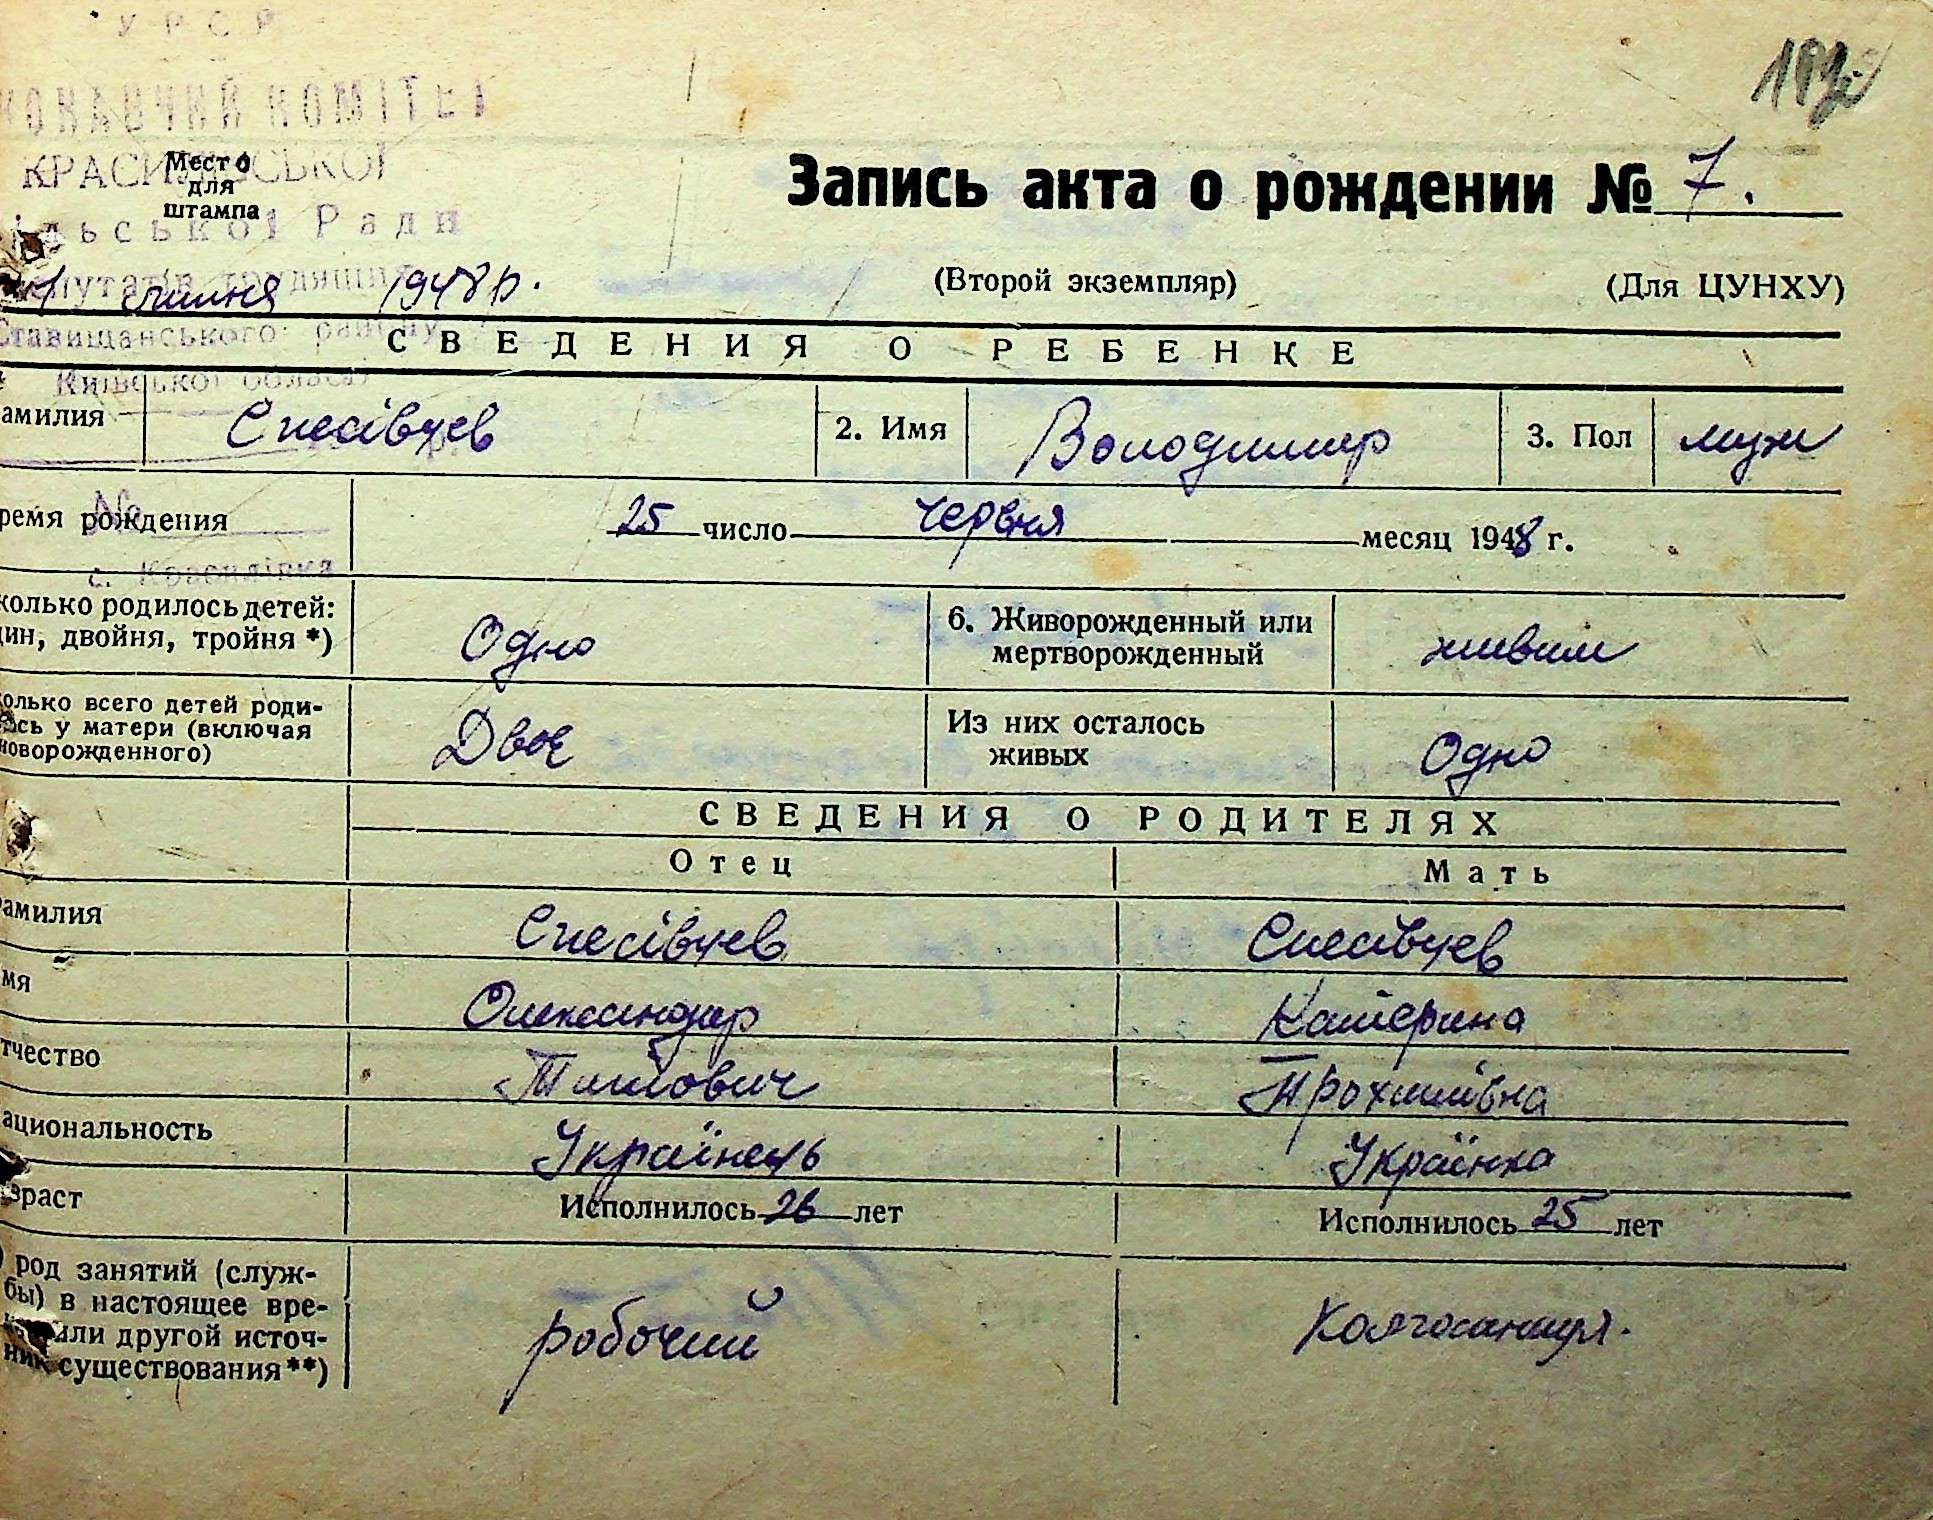 УРСР
КОНАВЧИЙ КОМІТЕТ
КРАСИЛІВСЬКОЇ
ільської Ради
депутатів трудящих
Ставищанського району
Київської області
№
с. Красилівка
Место
для
штампа
Запись акта о рождении № 7.
1 липня 1948 р.
(Второй экземпляр) (Для ЦУНХУ)
СВЕДЕНИЯ О РЕБЕНКЕ
амилия Спесівцев 2. Имя Володимир 3. Пол муж
ремя рождения 25 число червня месяц 1948 г.
колько родилось детей:
дин, двойня, тройня *) Одно 6. Живорожденный или
мертворожденный живим
колько всего детей роди-
ось у матери (включая
новорожденного) Двоє Из них осталось
живых Одно
СВЕДЕНИЯ О РОДИТЕЛЯХ
Отец Мать
амилия Спесівцев Спесівцев
мя Олександр Катерина
тчество Титович Трохимівна
ациональность Українець Українка
зраст Исполнилось 26 лет Исполнилось 25 лет
) род занятий (служ-
бы) в настоящее вре-
или другой источ-
ник существования **) робочий Колгоспниця.